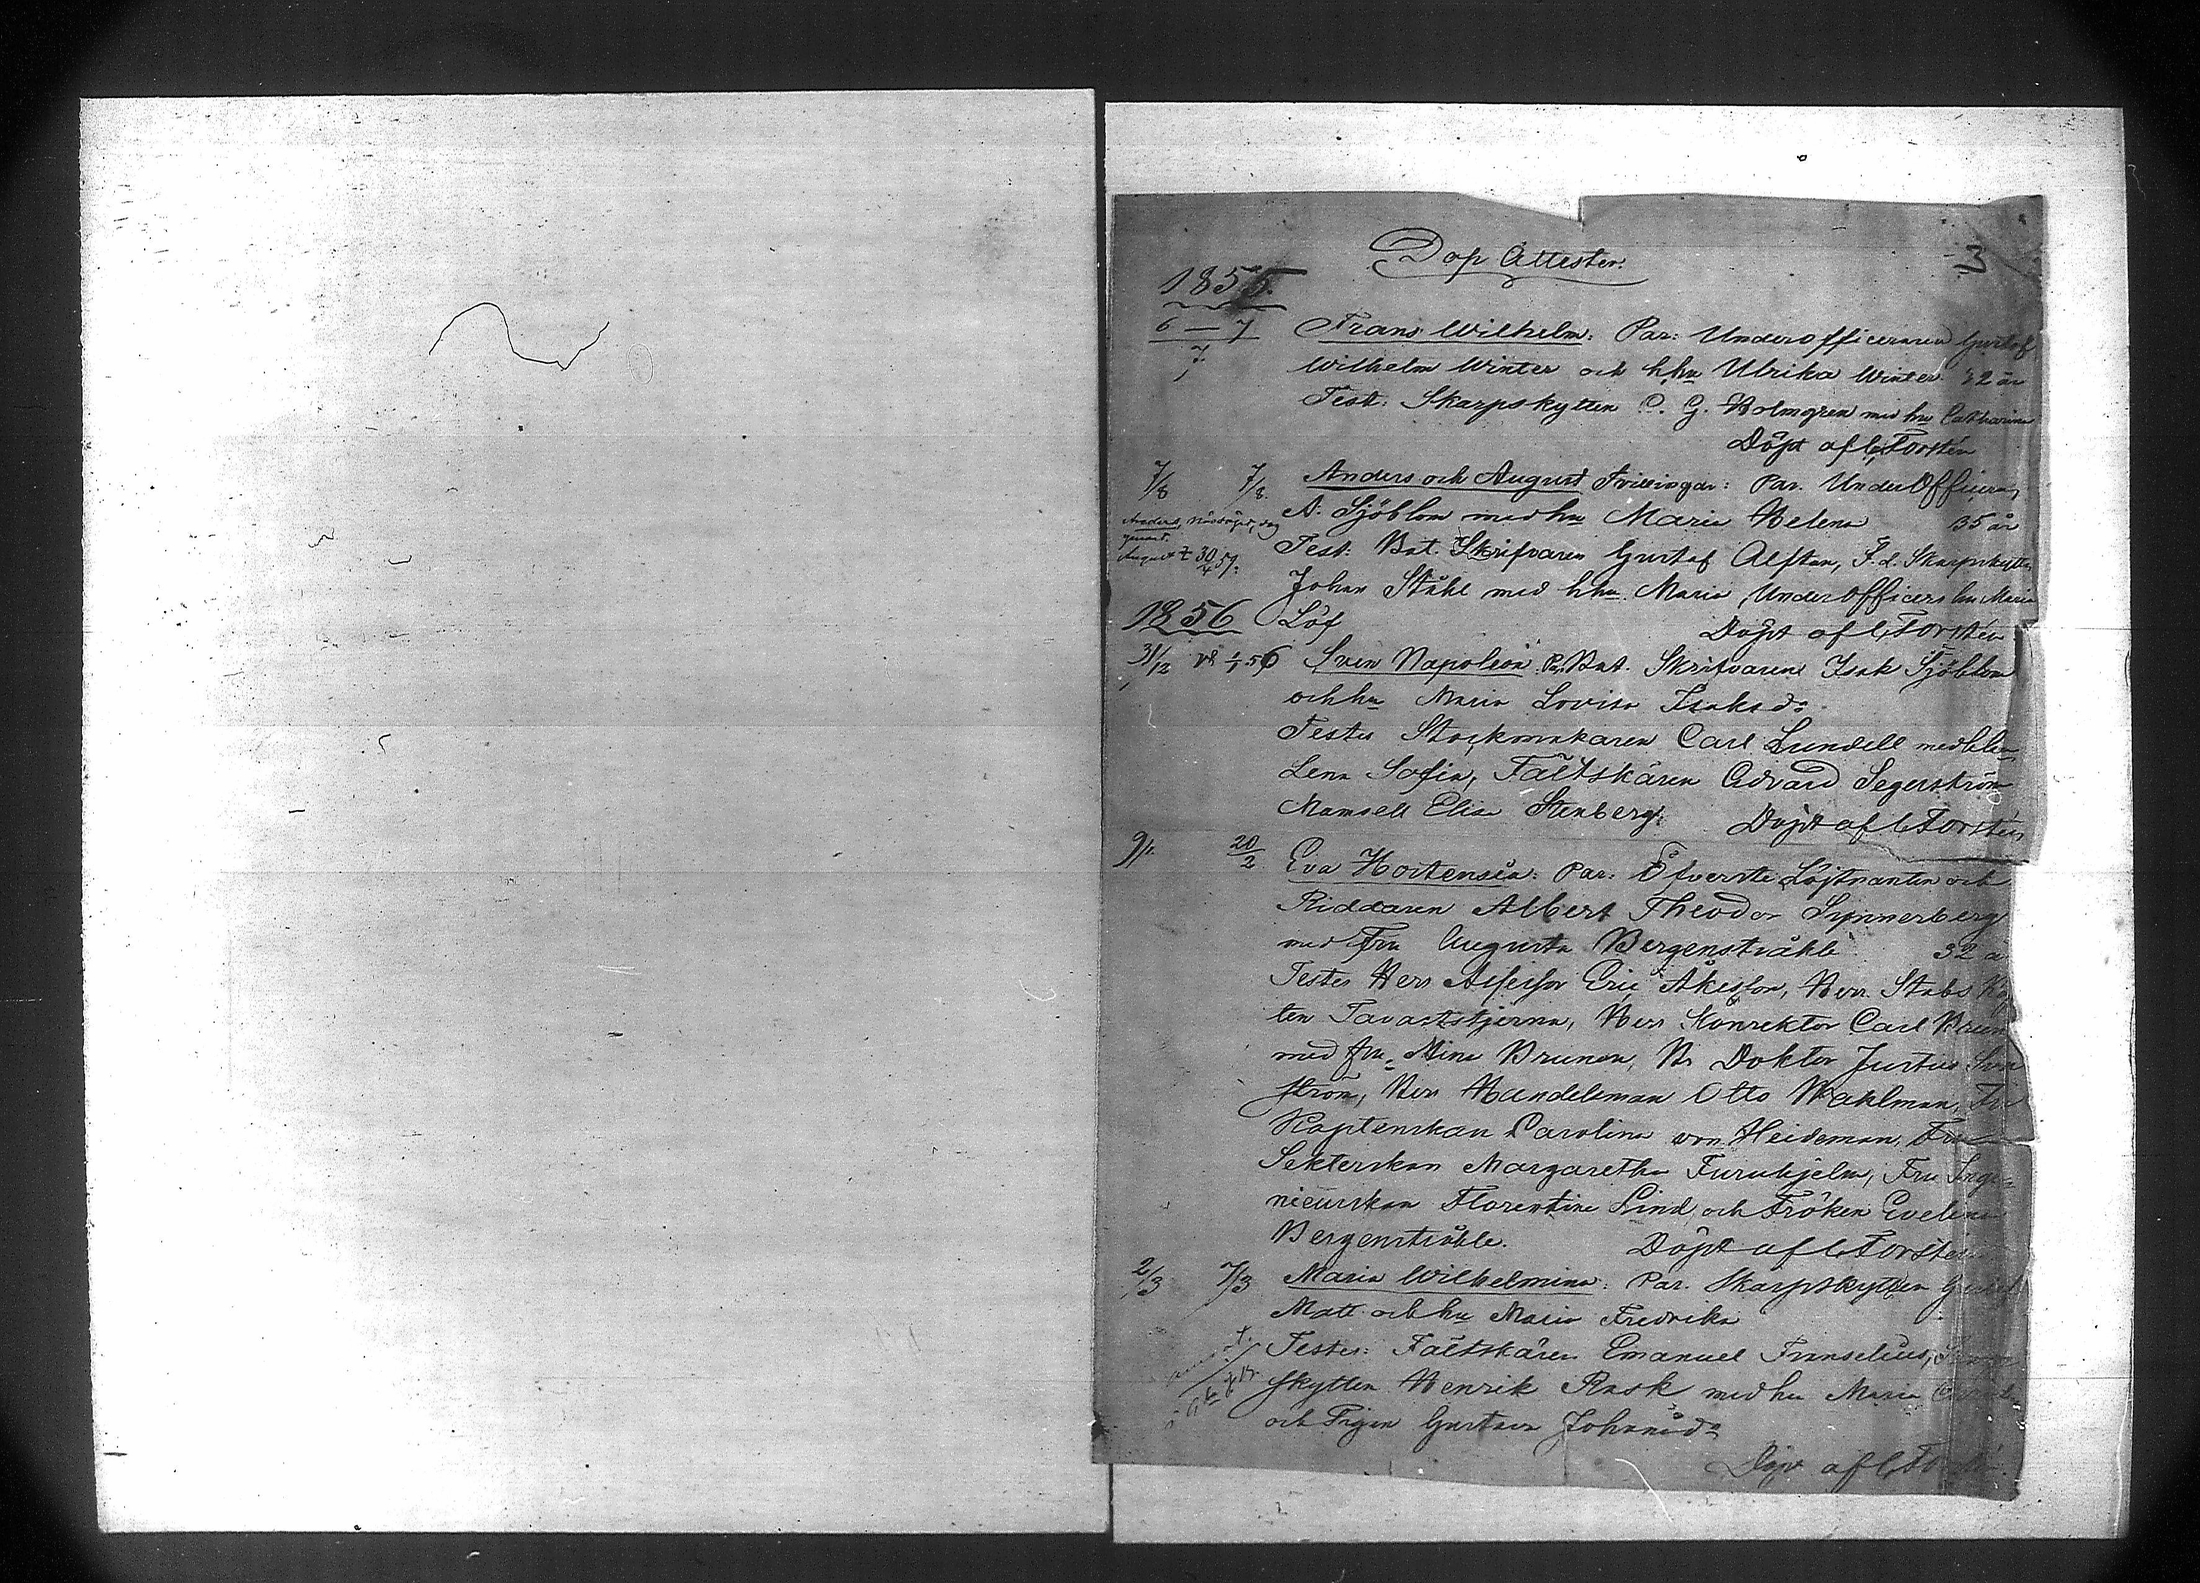 Dop Attester.
3
1855.
6 — 7
7
Frans Wilhelm: Par: Underofficeraren Gustaf
Wilhelm Winter och h hu Ulrika Winter 32 år
Test: Skarpskytten C. G. Holmgren med hu Catharina
Döpt af C Forstén
7/8 7/8. Anders och August Tvillingar: Par. UnderOfficern
A. Sjöblom med hu Maria Helena 35 år
Anders, nöddöpt, dog
genast.
August † 30/4 57.
Test: Bat. Skrifvaren Gustaf Alftan, F. d. Skarpskytten
Johan Ståhl med h hu. Maria, Underofficers hu Maria
1856 Löf
Döpt af C Forstén
31/12 1/1 56 Sven Napoleon. Par. Bat. Skrifvaren Isak Sjöblom
och hu Maria Lovisa Isaksd:
Testes Stockmakaren Carl Lundell med
Lena Sofia, Fältskären Edvard Segerström
Mamsell Elisa Stenberg. Döpt af C Forstén
9/1. 20/2 Eva Hortensia: Par: Öfverste Löjtnanten och
Riddaren Albert Theodor Synnerberg
med Fru Augusta Bergenstråhle 32 a
Testes Herr Assessor Eric Åkesson, Herr Stabs
ten Tavaststjerna, Herr Konrektor Carl
med fru Mina Brunou, Hr Doktor Justus
ström, Herr Handelsman Otto Wahlman, Fru
Kaptenskan Carolina von Heideman, Fru
Sekterskan Margaretha Furuhjelm, Fru Inge-
nieurskan Florentine Lind, och Fröken Evelina
Bergenstråhle. Döpt af C Forstén
2/3 7/3 Maria Wilhelmina: Par. Skarpskytten Gustaf
Matt och hu Maria Fredrika
Testes: Fältskären Emanuel Franselius,
skytten Henrik Rask med hu Maria
och Pigan Gustava Johansd:
Döpt af C Forstén